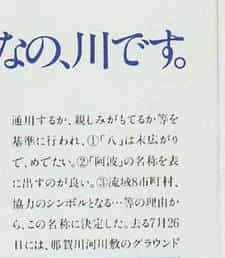 なの、川です。
通用するか、親しみがもてるか等を
基準に行われ、①「八」は末広がり
で、めでたい。②「阿波」の名称を表
に出すのが良い。③流域8市町村、
協力のシンボルとなる…等の理由か
ら、この名称に決定した。去る7月26
日には、那賀川河川敷のグラウンド